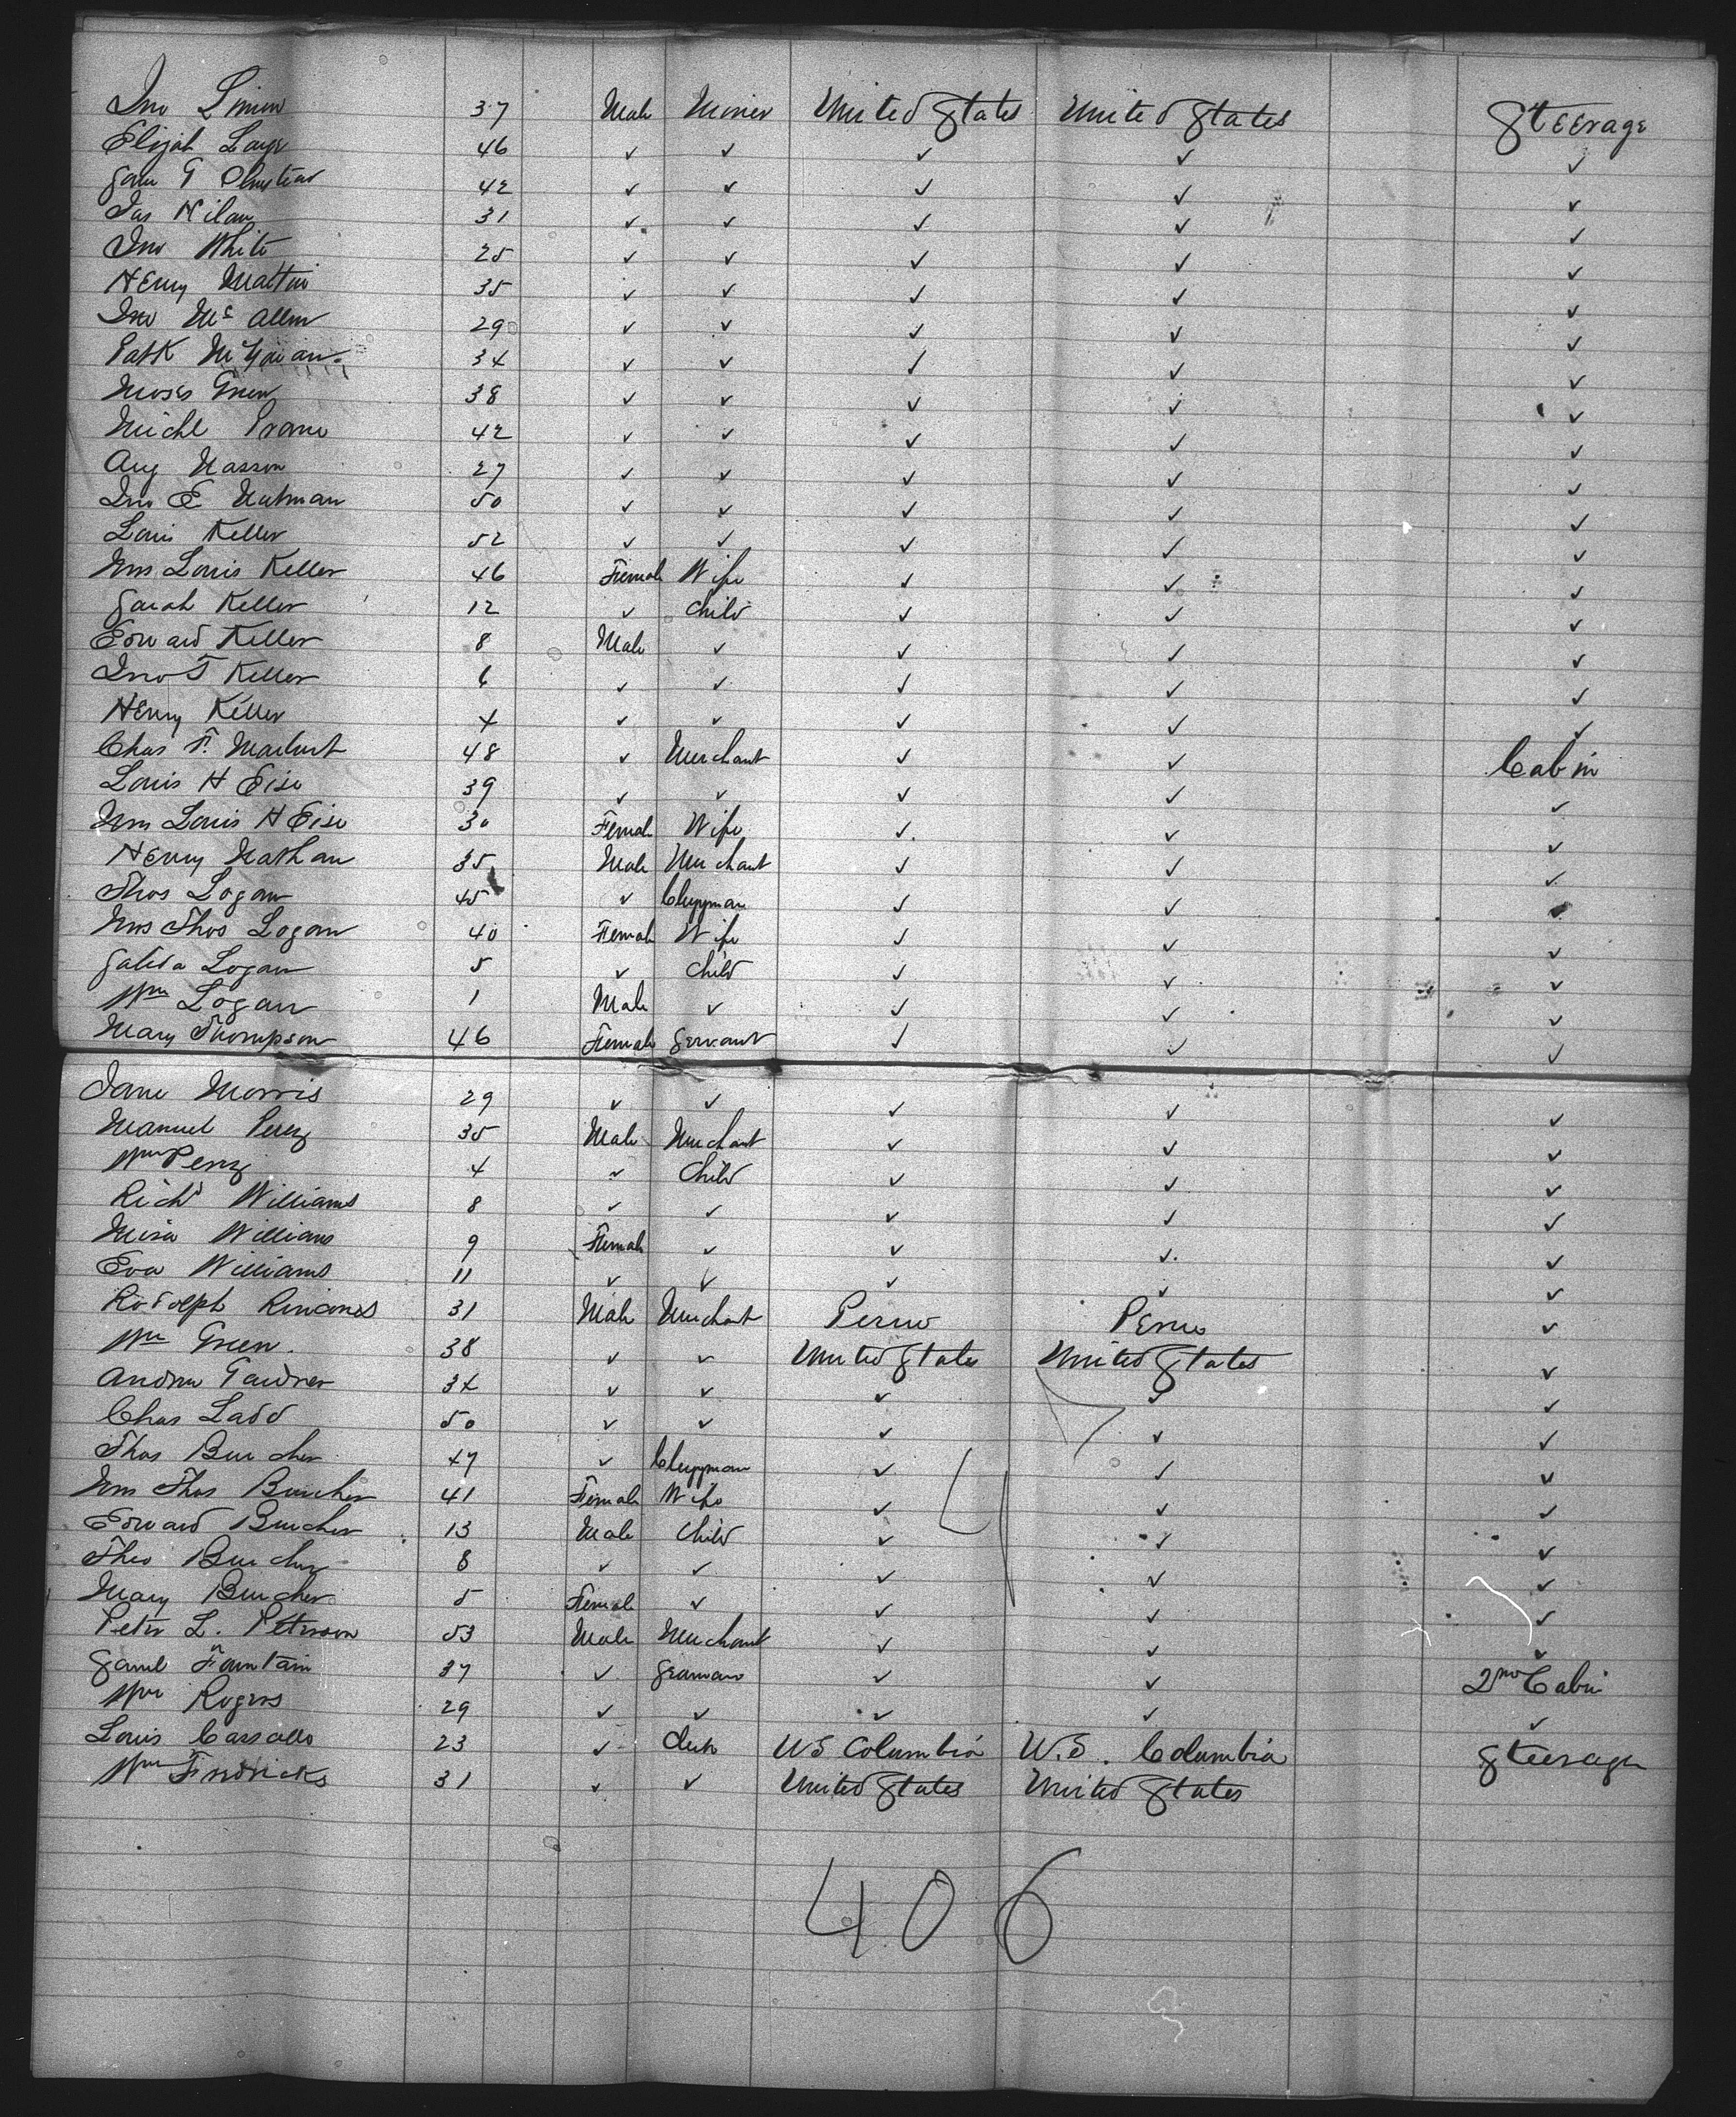 Jno Simon 37 Male Miner United States United States Steerage
Elijah Large 46 ✓ ✓ ✓ ✓ ✓
Saml T Olmstead 42 ✓ ✓ ✓ ✓ ✓
Jas Nilan 31 ✓ ✓ ✓ ✓ ✓
Jno White 25 ✓ ✓ ✓ ✓ ✓
Henry Mattin 35 ✓ ✓ ✓ ✓ ✓
Jno McAllen 29 ✓ ✓ ✓ ✓ ✓
Patk 34 ✓ ✓ ✓ ✓ ✓
Moses Green 38 ✓ ✓ ✓ ✓ ✓
Michl 42 ✓ ✓ ✓ ✓ ✓
Aug 27 ✓ ✓ ✓ ✓ ✓
Jno E Hutman 50 ✓ ✓ ✓ ✓ ✓
Louis Keller 52 ✓ ✓ ✓ ✓ ✓
Mrs Louis Keller 46 Female Wife ✓ ✓ ✓
Sarah Keller 12 ✓ Child ✓ ✓ ✓
Edward Keller 8 Male ✓ ✓ ✓ ✓
Jno T Keller 6 ✓ ✓ ✓ ✓ ✓
Henry Keller 4 ✓ ✓ ✓ ✓ ✓
Chas F. 48 ✓ Merchant ✓ ✓ Cabin
Louis H Eise 39 ✓ ✓ ✓ ✓ ✓
Mrs Louis H Eise 30 Female Wife ✓ ✓ ✓
Henry Nathan 35 Male Merchant ✓ ✓ ✓
Thos Logan 45 ✓ Clergyman ✓ ✓ ✓
Mrs Thos Logan 40 Female Wife ✓ ✓ ✓
Logan 5 ✓ Child ✓ ✓ ✓
Wm Logan 1 Male ✓ ✓ ✓ ✓
Mary Thompson 46 Female Servant ✓ ✓ ✓
Jane Morris 29 ✓ ✓ ✓ ✓ ✓
Manuel Perez 35 Male Merchant ✓ ✓ ✓
Wm Perez 4 ✓ Child ✓ ✓ ✓
Richd Williams 8 ✓ ✓ ✓ ✓ ✓
Williams 9 Female ✓ ✓ ✓ ✓
Eva Williams 11 ✓ ✓ ✓ ✓ ✓
Rodolph Rincones 31 Male Merchant Peru Peru ✓
Wm Green. 38 ✓ ✓ United States United States ✓
Andrew Gardner 34 ✓ ✓ ✓ ✓ ✓
Chas Ladd 50 ✓ ✓ ✓ ✓ ✓
Thos Burcher 47 ✓ Clergyman ✓ ✓ ✓
Mrs Thos Burcher 41 Female Wife ✓ ✓ ✓
Edward Burcher 13 Male Child ✓ ✓ ✓
Theo Burcher 8 ✓ ✓ ✓ ✓ ✓
Mary Burcher 5 Female ✓ ✓ ✓ ✓
Peter L. Peterson 53 Male Merchant ✓ ✓ ✓
Saml Fountain 37 ✓ Seaman ✓ ✓ 2nd Cabin
Wm Rogers 29 ✓ ✓ ✓ ✓ ✓
Louis 23 ✓ Clerk US Columbia U.S. Columbia Steerage
Wm Fredricks 31 ✓ ✓ United States United States
406